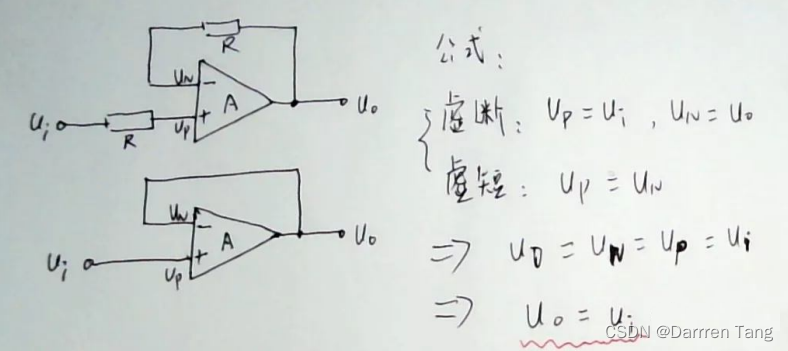 R
U_N
−
A
+
U_i
R
U_P
U_o
U_N
−
A
+
U_i
U_P
U_o
公式:
虚断: U_P = U_i , U_N = U_o
虚短: U_P = U_N
=> U_O = U_N = U_P = U_i
=> U_o = U_i
CSDN @Darrren Tang